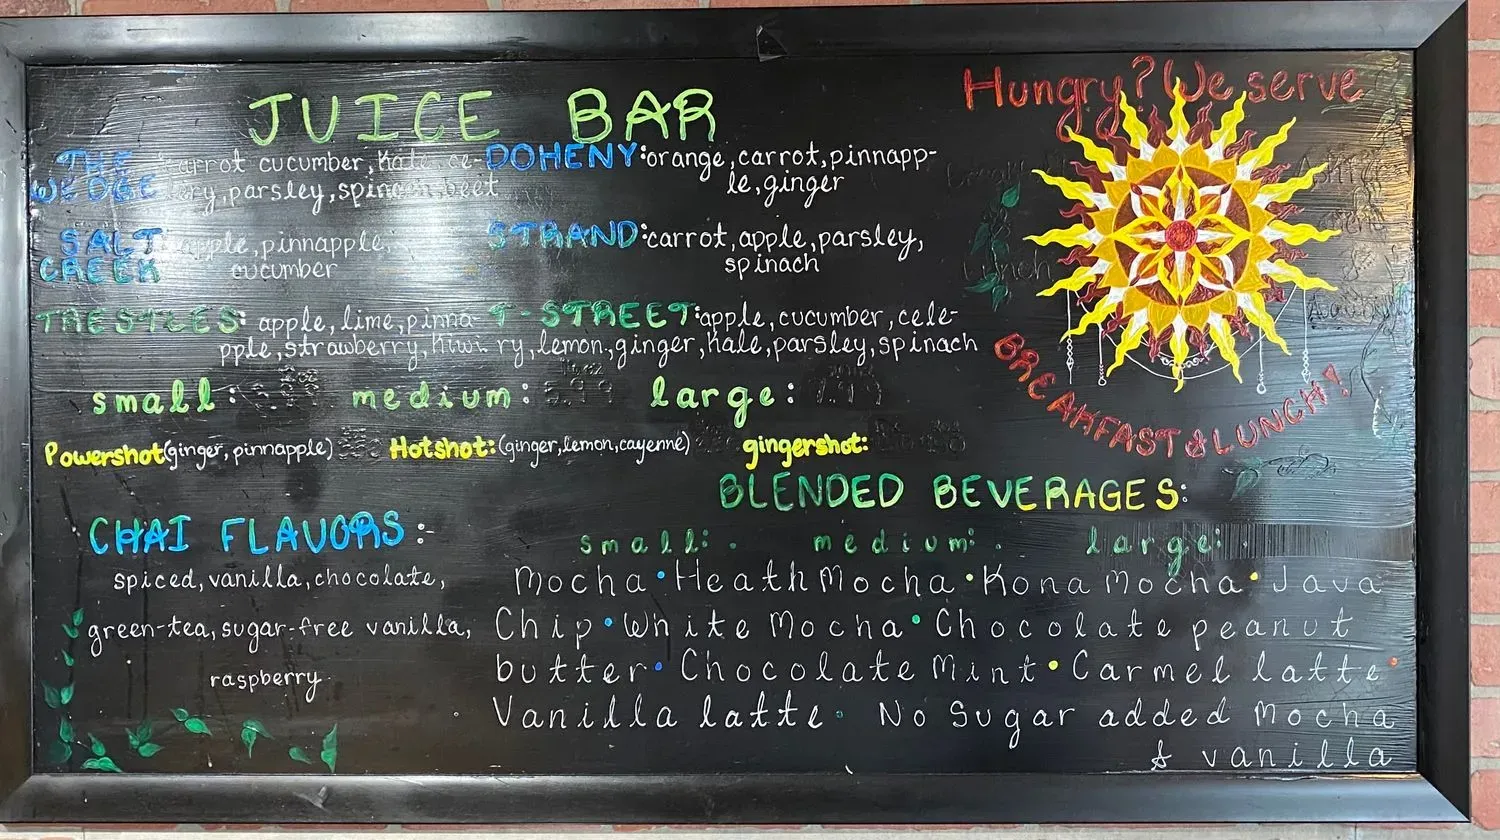 Hungry? We serve
BREAKFAST & LUNCH!
JUICE BAR
THE WEDGE carrot cucumber, kale, ce-
ery, parsley, spinach, beet
DOHENY: orange, carrot, pinnapp-
le, ginger
SALT CREEK apple, pinnapple,
cucumber
STRAND: carrot, apple, parsley,
spinach
TRESTLES: apple, lime, pinna-
pple, strawberry, kiwi
T-STREET: apple, cucumber, cele-
ry, lemon, ginger, kale, parsley, spinach
small: medium: large:
Powershot (ginger, pinnapple) Hotshot: (ginger, lemon, cayenne) gingershot:
CHAI FLAVORS:
spiced, vanilla, chocolate,
green-tea, sugar-free vanilla,
raspberry
BLENDED BEVERAGES:
small: medium: large:
Mocha • Heath Mocha • Kona Mocha • Java
Chip • White Mocha • Chocolate peanut
butter • Chocolate Mint • Carmel latte •
Vanilla latte • No Sugar added Mocha
& vanilla